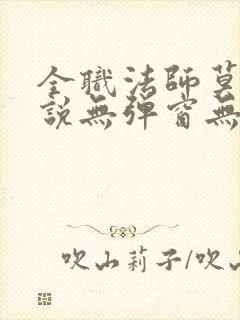 全職法師莫
說無彈窗無
吹山莉子/吹山